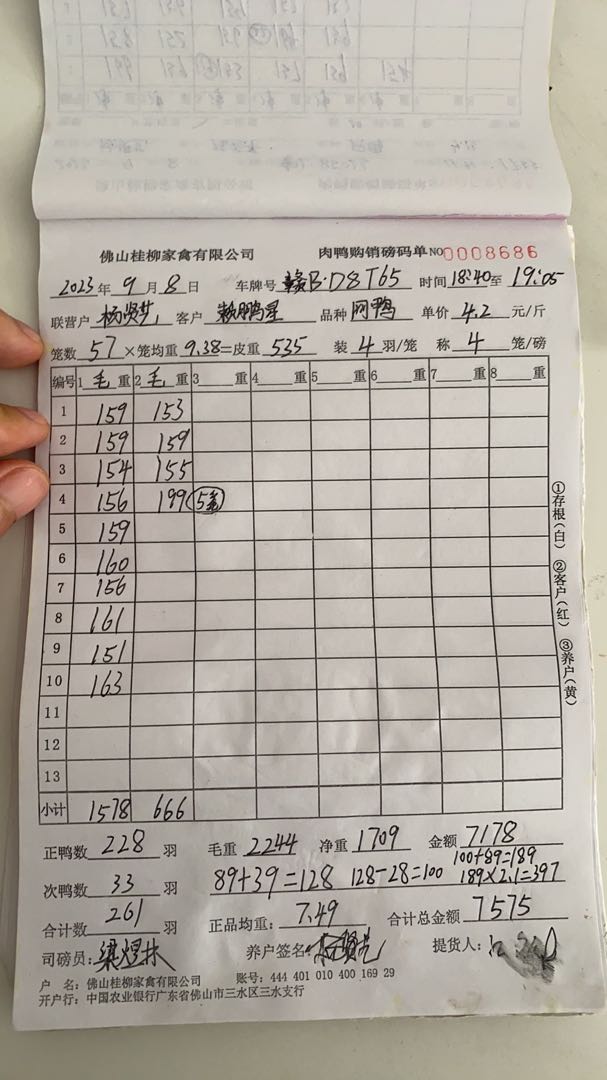 佛山桂柳家禽有限公司 肉鸭购销磅码单 NO 0008686
2023年 9月 8日 车牌号 赣B·D8T65 时间 18:40 至 19:05
联营户 杨贤芝 客户 赖鹏星 品种 网鸭 单价 4.2 元/斤
笼数 57 ×笼均重 9.38=皮重 535 装 4 羽/笼 称 4 笼/磅
编号 1 毛 重 2 毛 重 3 重 4 重 5 重 6 重 7 重 8 重
1 159 153
2 159 159
3 154 155
4 156 199 5笼
5 159
6 160
7 156
8 161
9 151
10 163
11
12
13
小计 1578 666
①存根(白) ②客户(红) ③养户(黄)
正鸭数 228 羽 毛重 2244 净重 1709 金额 7178
100+89=189
次鸭数 33 羽 89+39=128 128-28=100 189×2.1=397
合计数 261 羽 正品均重: 7.49 合计总金额 7575
司磅员: 梁煜林 养户签名: 提货人:
户 名: 佛山桂柳家禽有限公司 账号: 444 401 010 400 169 29
开户行: 中国农业银行广东省佛山市三水区三水支行